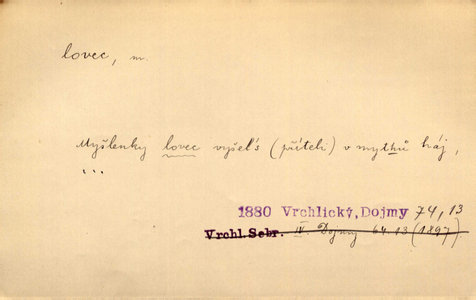 lovec, m.
Myšlenky lovec vyšel's (příteli) v mythů háj,
...
1880 Vrchlický, Dojmy 74, 13
Vrchl. Sebr. IV. Dojmy 64. 13 (1897)